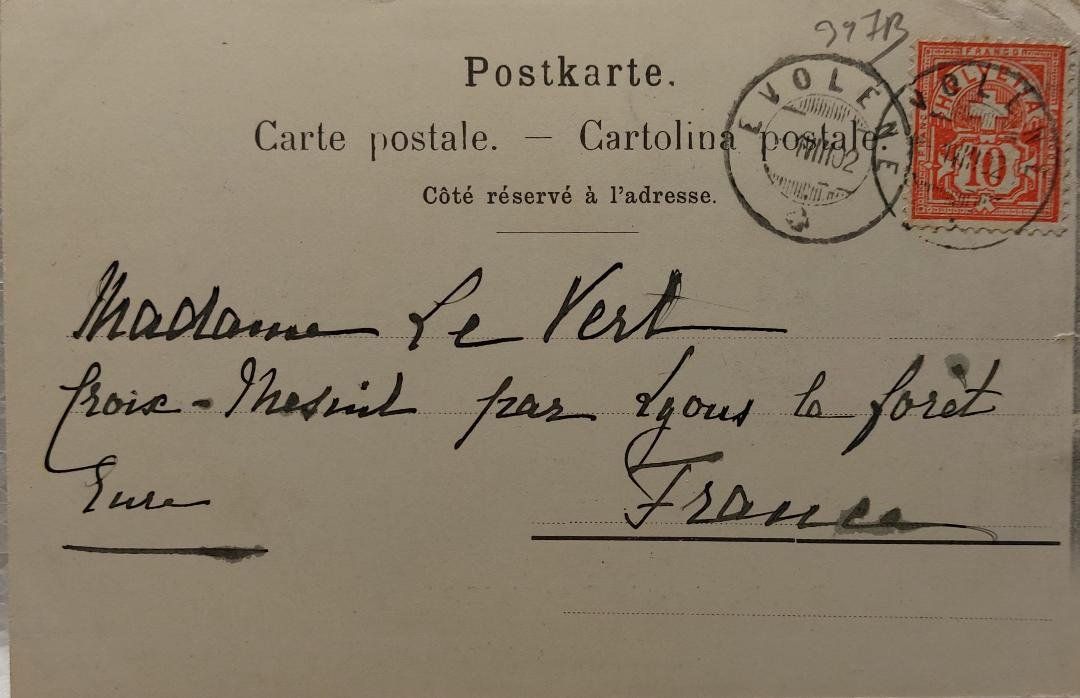 Postkarte.
Carte postale. — Cartolina postale.
Côté réservé à l'adresse.
EVOLENE
EVOLENE
FRANCO
HELVETIA
10
Madame Le Vert
Croix-Mesnil par Lyons la forêt
Eure France